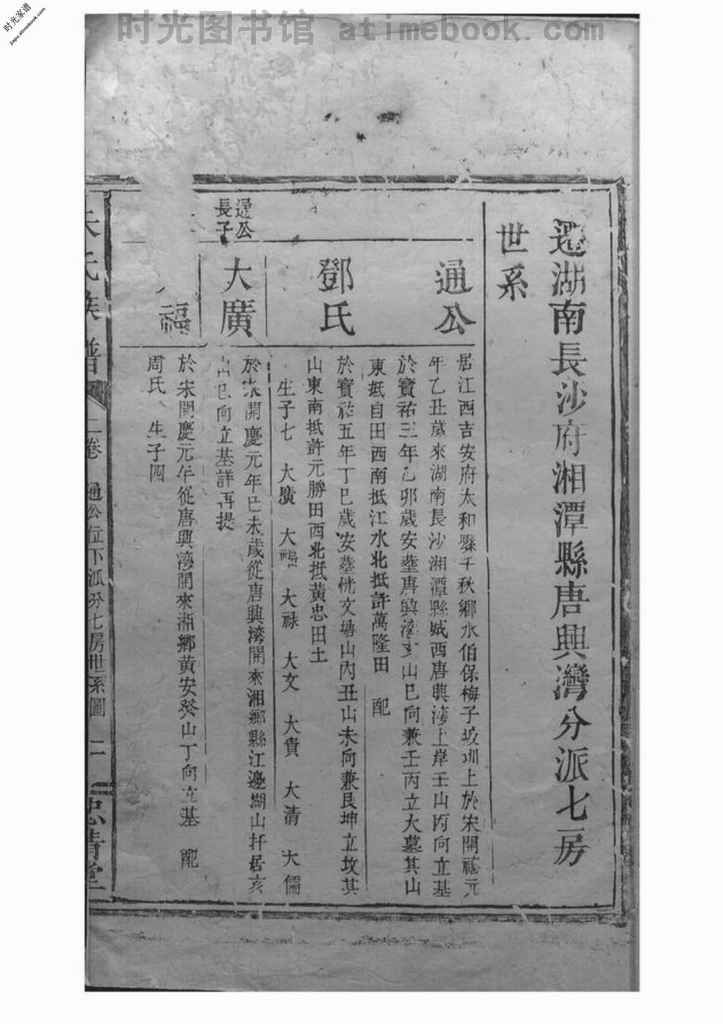 时光图书馆 atimebook.com
时光家谱
jiapu.atimebook.com
遷湖南長沙府湘潭縣唐興灣分派七房
世系
通公
居江西吉安府太和縣千秋鄉水伯保梅子坡圳上於宋開禧元
年乙丑歲來湖南長沙湘潭縣城西唐興灣上岸壬山丙向立基
於寶祐三年乙卯歲安塟唐興灣亥山巳向兼壬丙立大墓其山
東抵自田西南抵江水北抵許萬隆田 配
鄧氏
於寶祐五年丁巳歲安塟 文塘山內丑山未向兼艮坤立坟其
山東南抵許元勝田西北抵黃忠田土
生子七 大廣 大福 大禄 大文 大貴 大清 大儒
通公
長子
大廣
於宋開慶元年己未歲從唐興灣開來湘鄉縣江邊湖山扦居亥
山巳向立基詳再提
福
於宋開慶元年從唐興灣開來湘鄉黃安癸山丁向立基 配
周氏 生子四
氏族譜
二卷
通公位下派分七房世系圖
二
忠清堂